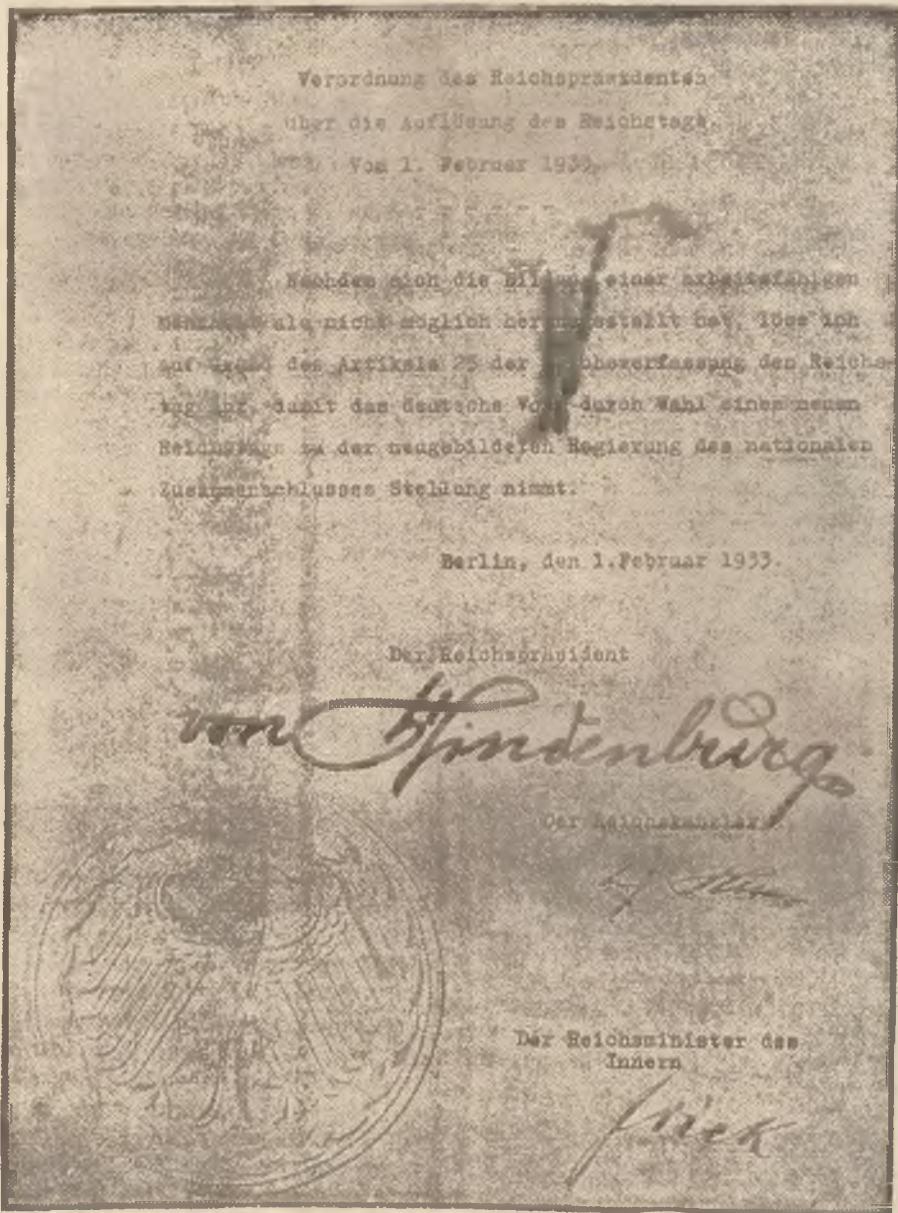 Verordnung des Reichspräsidenten
über die Auflösung des Reichstags.
Vom 1. Februar 1933.
Nachdem sich die Bildung einer arbeitsfähigen
Mehrheit als nicht möglich herausgestellt hat, löse ich
auf Grund des Artikels 25 der Reichsverfassung den Reichs-
tag auf, damit das deutsche Volk durch Wahl eines neuen
Reichstags zu der neugebildeten Regierung des nationalen
Zusammenschlusses Stellung nimmt.
Berlin, den 1.Februar 1933.
Der Reichspräsident
von Hindenburg
Der Reichskanzler
Der Reichsminister des
Innern
Frick